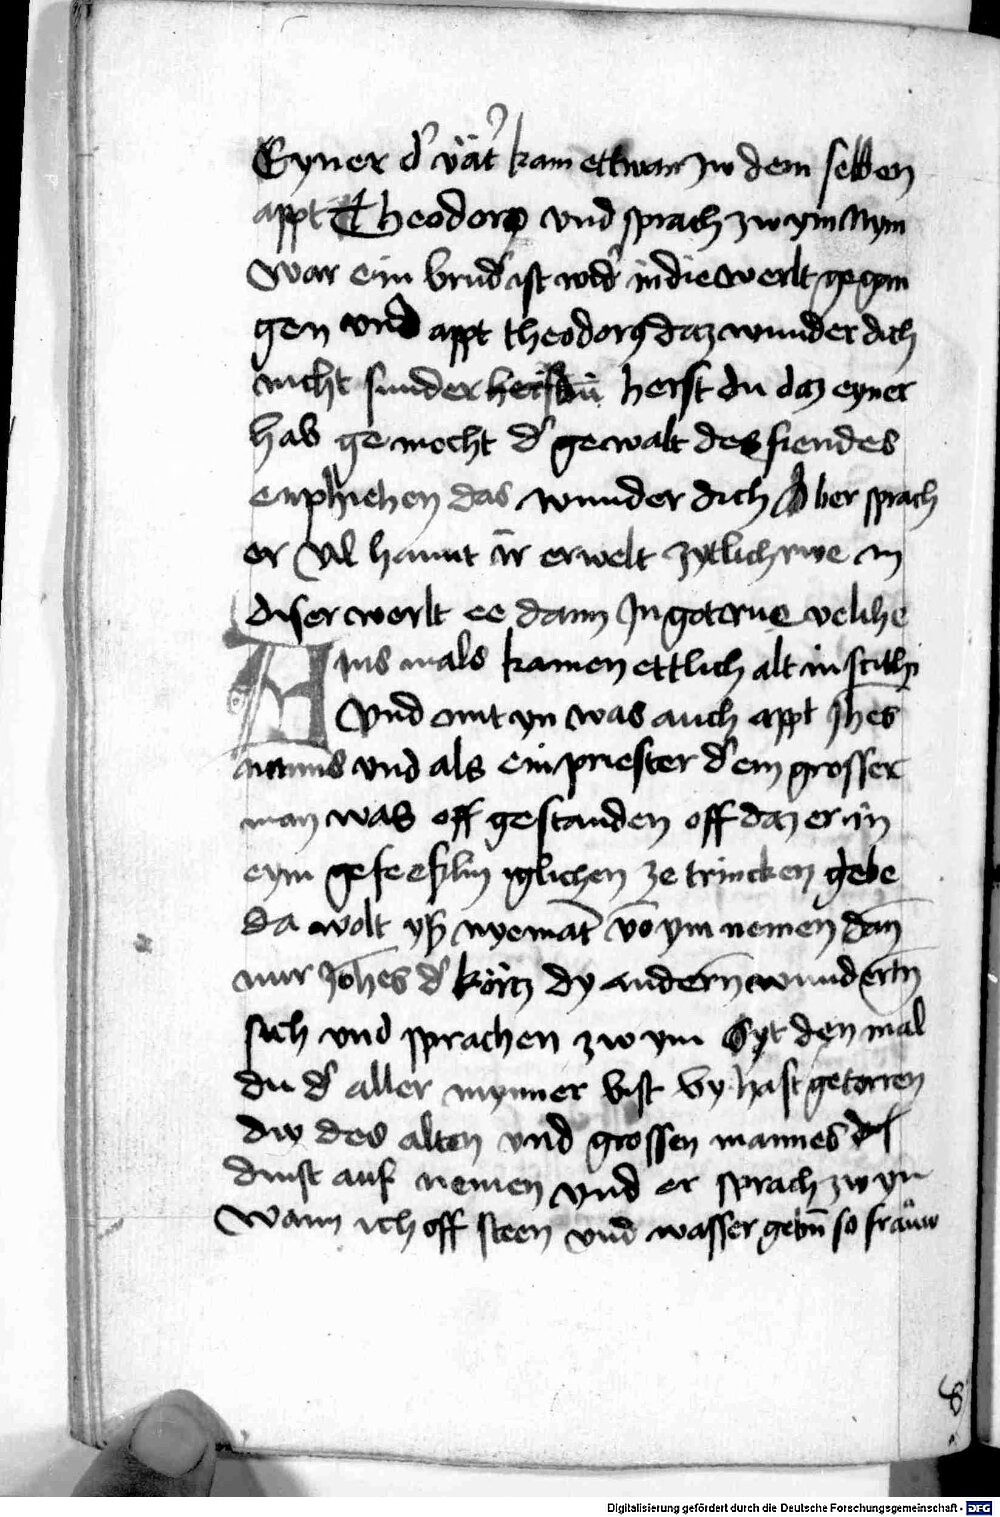 Eyner d' vät' kam ettwan zw dem selben
appt Theodoro vnd sprach zw ym Nym
war ein brud' ist wid' in die werlt gegan
gen vnd appt theodorꝯ daz wunder dich
nicht sunder herstu herst du daz eyner
hab gemocht d' gewalt des fiendes
enphliehen das wunder dich Aber sprach
er vil haunt ir erwelt zytlich rwe in
diser werlt ee dann In got rue velihe
Ains mals kamen ettlich alt in scithi
vnd mit yn was auch appt Jhes
nanus vnd als ein priester d' ein grosser
man was off gestanden off daz er in
eym gefeeßlin yglichen ze trincken gebe
da wolt yß nyemāt vō ym nemen dan
nur Johes d' kürtz dy andern wundertn
sich vnd sprachen zw ym Syt den mal
du d' aller mynner bist vy hast getorren
diy des alten vnd grossen mannes
dinst auf nemen vnd er sprach zw yn
Wann ich off steen vnd wasser gebn so fräuw
Digitalisierung gefördert durch die Deutsche Forschungsgemeinschaft - DFG